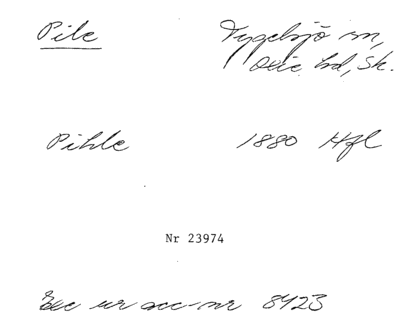 Pile Tygelsjö sn,
Oxie hd, Sk.
Pihle 1880 Hfl
Nr 23974
Exc ur acc-nr 8423